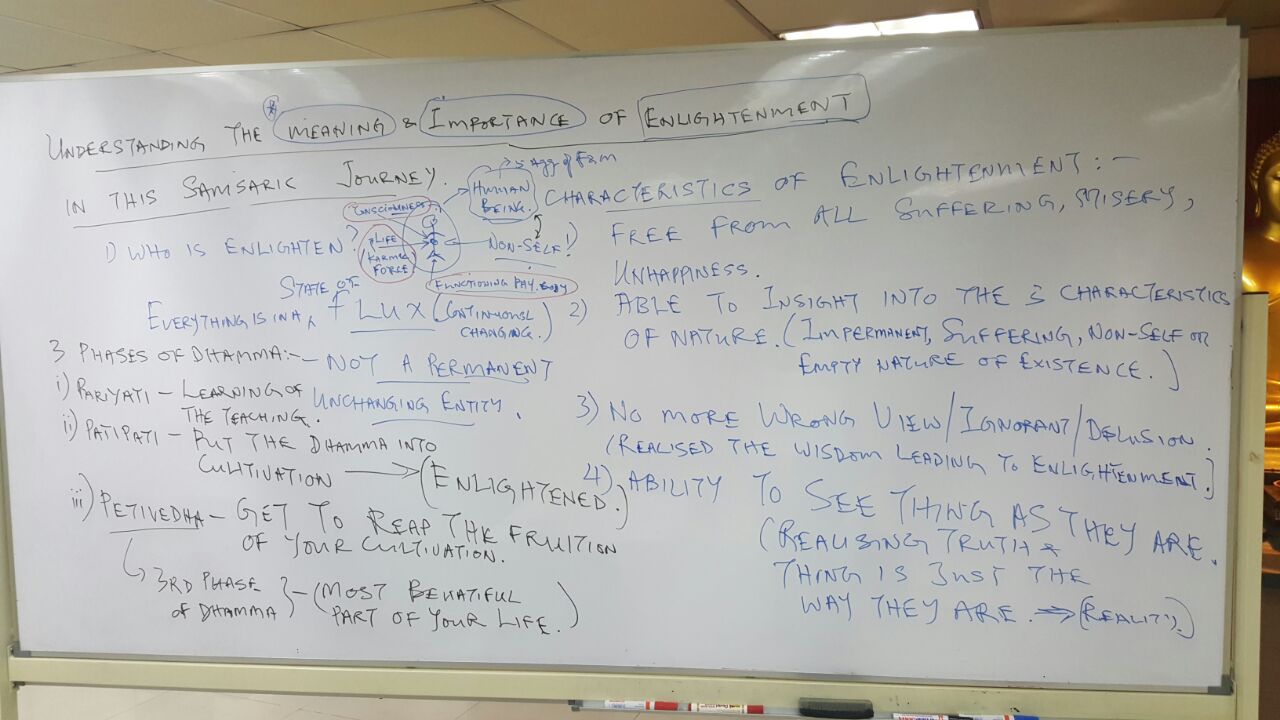 UNDERSTANDING THE * MEANING & IMPORTANCE OF ENLIGHTENMENT
IN THIS SAMSARIC JOURNEY.
1) WHO IS ENLIGHTEN?
CONSCIOUSNESS
LIFE
KARMIC
FORCE
→ 5 Agg of
HUMAN
BEING.
NON-SELF!
FUNCTIONING PHY. BODY
STATE OF
EVERYTHING IS IN A ^ FLUX (CONTINUOUSL
CHANGING.)
3 PHASES OF DHAMMA:- NOT A PERMANENT
UNCHANGING ENTITY.
i) PARIYATI - LEARNING OF
THE TEACHING.
ii) PATIPATI - PUT THE DHAMMA INTO
CULTIVATION → (ENLIGHTENED.)
iii) PETIVEDHA - GET TO REAP THE FRUITION
OF YOUR CULTIVATION.
3RD PHASE
OF DHAMMA } - (MOST BEUATIFUL
PART OF YOUR LIFE.)
CHARACTERISTICS OF ENLIGHTENMENT:-
1) FREE FROM ALL SUFFERING, MISERY,
UNHAPPINESS.
2) ABLE TO INSIGHT INTO THE 3 CHARACTERISTICS
OF NATURE. (IMPERMANENT, SUFFERING, NON-SELF OR
EMPTY NATURE OF EXISTENCE.)
3) NO MORE WRONG VIEW/IGNORANT/DELUSION.
(REALISED THE WISDOM LEADING TO ENLIGHTENMENT.)
4) ABILITY TO SEE THING AS THEY ARE.
(REALISING TRUTH &
THING IS JUST THE
WAY THEY ARE. ⇒ (REALITY.)